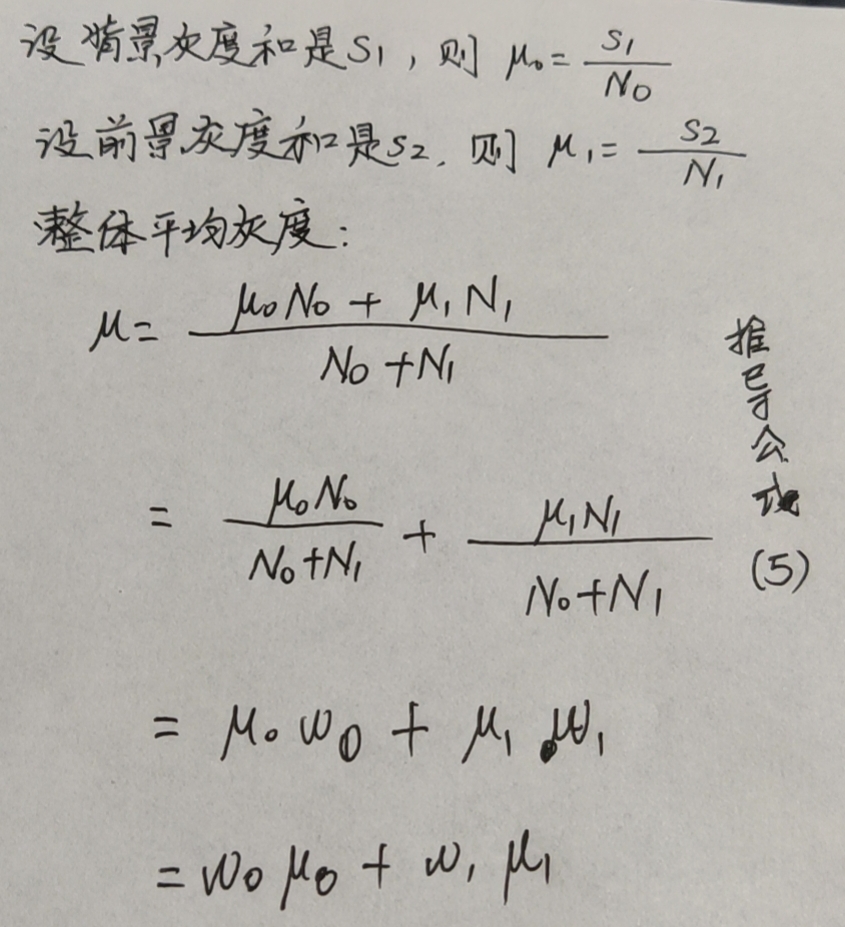 设背景灰度和是S1，则 μ0 = S1/N0
设前景灰度和是S2，则 μ1 = S2/N1
整体平均灰度：
μ = (μ0N0 + μ1N1)/(N0+N1)
= μ0N0/(N0+N1) + μ1N1/(N0+N1)
= μ0 w0 + μ1 w1
= w0 μ0 + w1 μ1
推导公式(5)